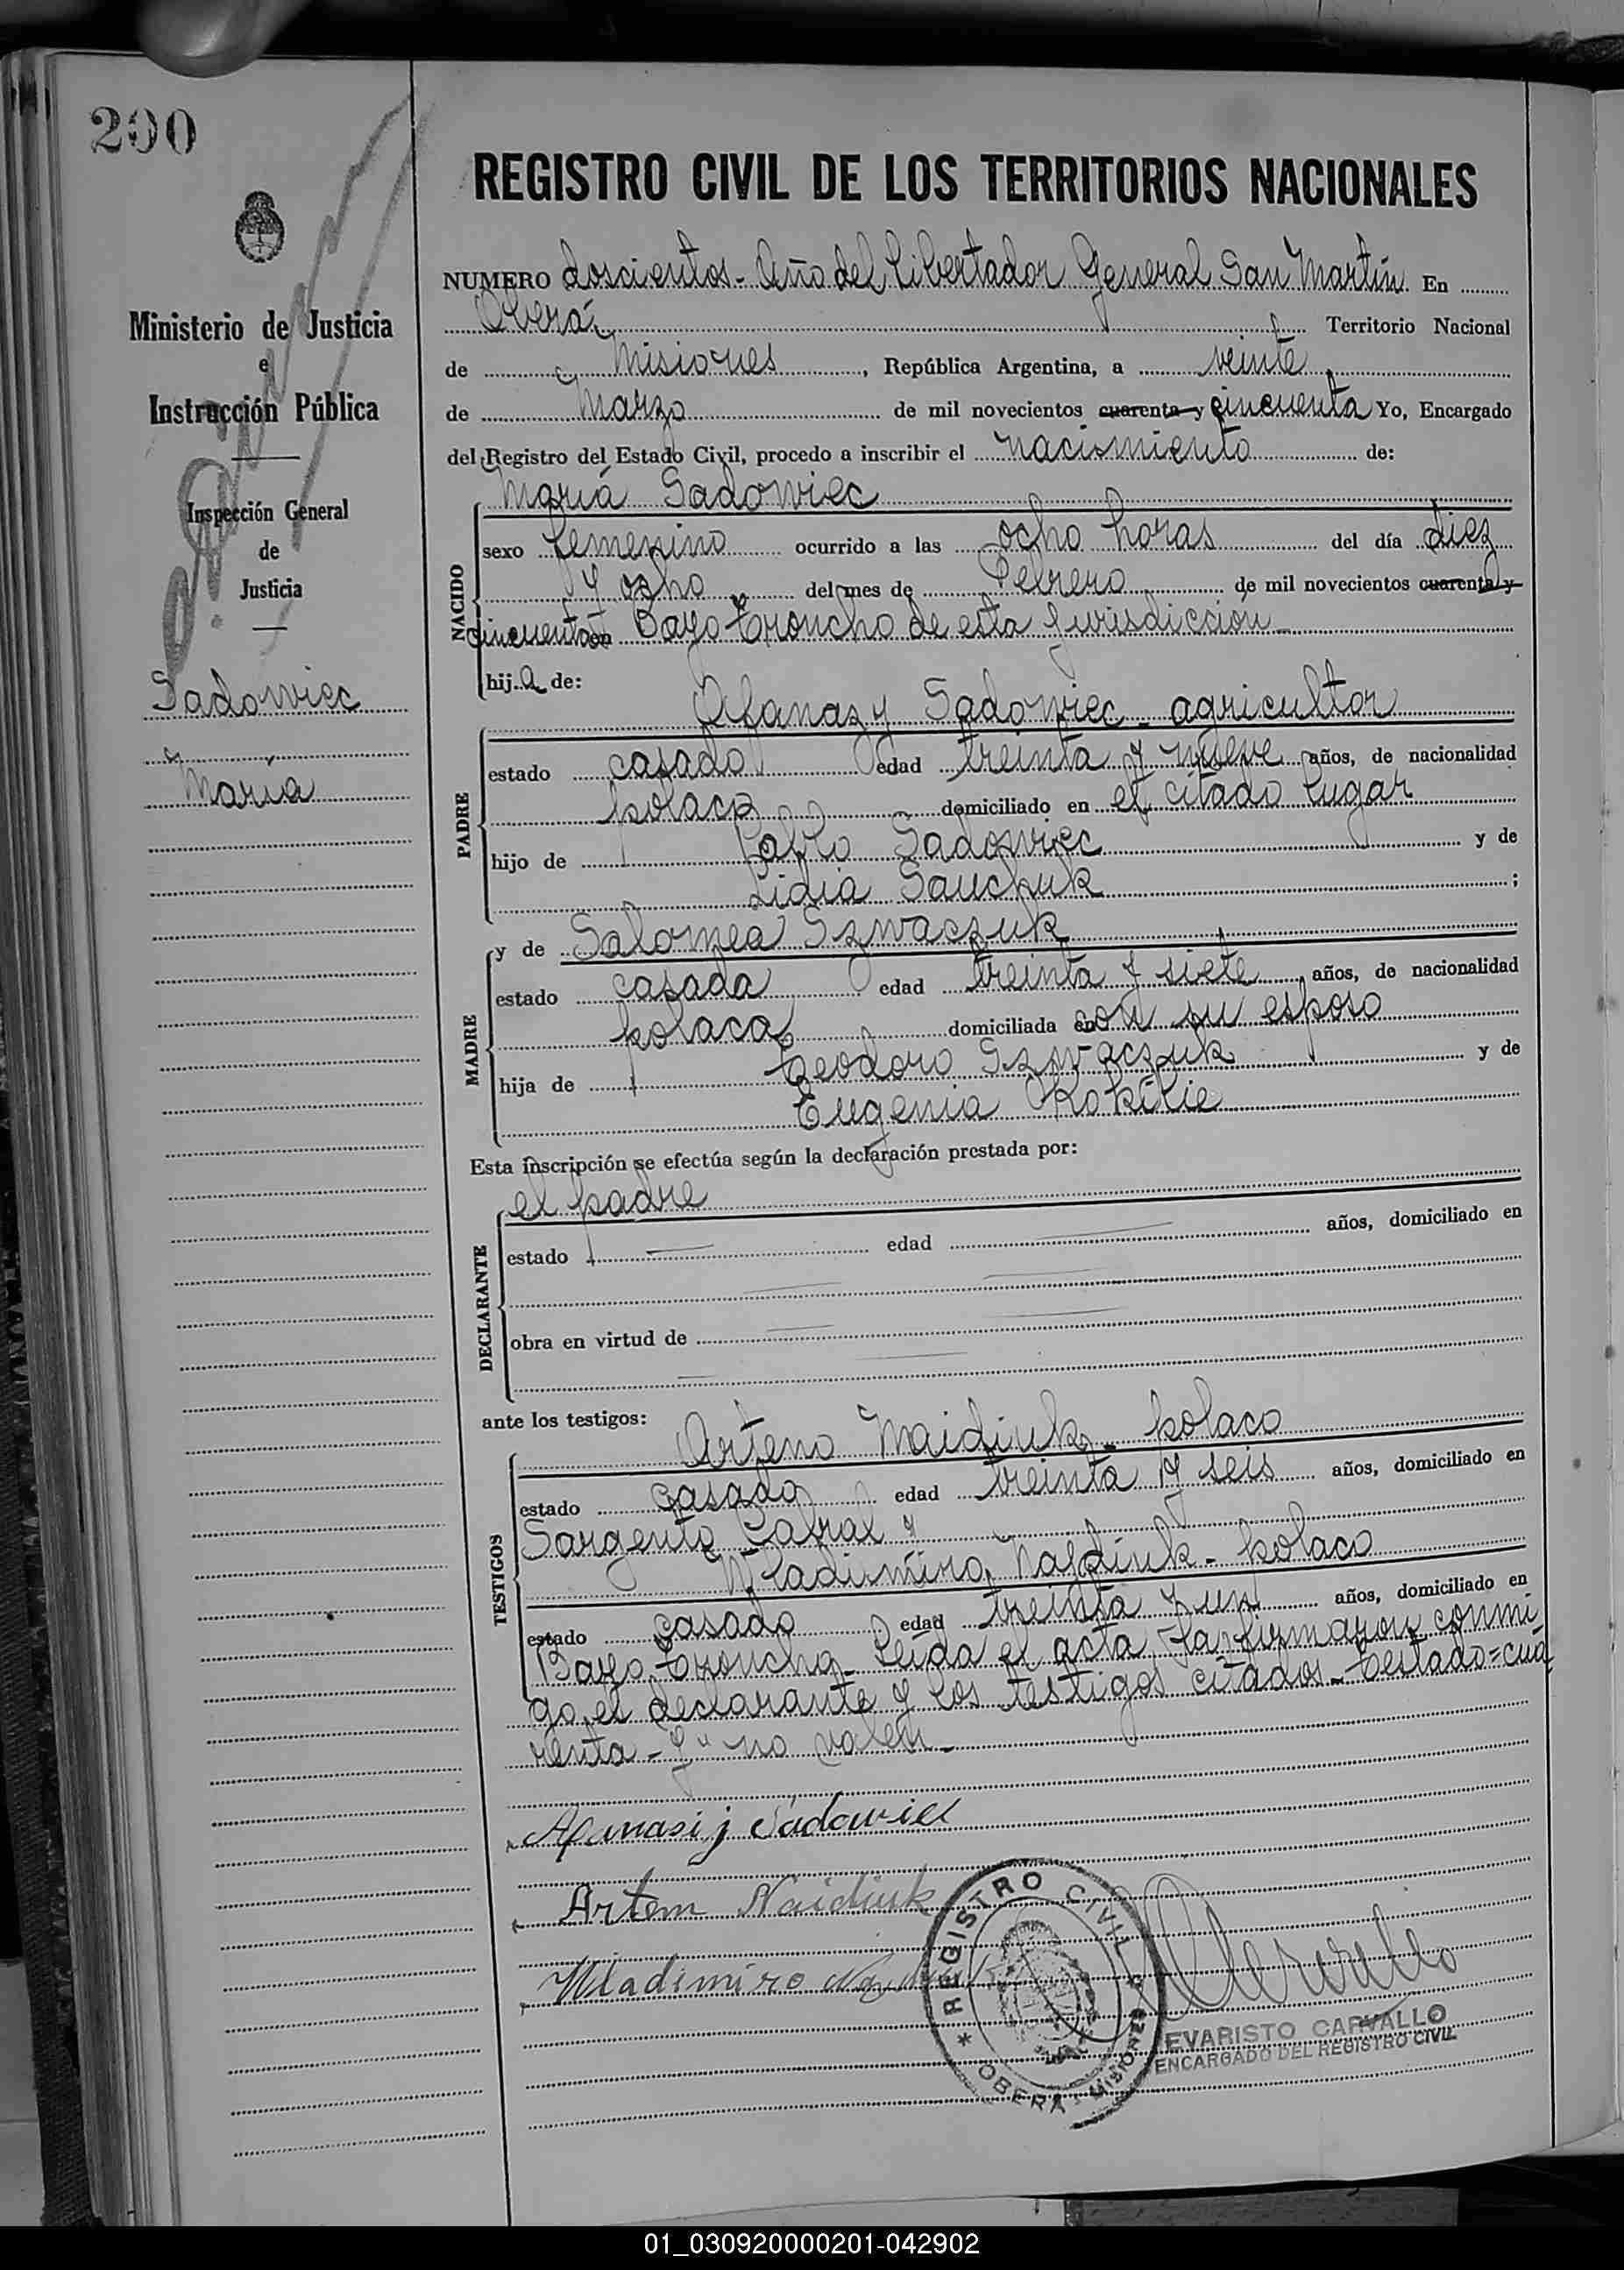 200
Ministerio de Justicia
e
Instrucción Pública
Inspección General
de
Justicia
Sadowiec
María
REGISTRO CIVIL DE LOS TERRITORIOS NACIONALES
NUMERO doscientos - Año del Libertador General San Martín. En
Oberá, Territorio Nacional
de Misiones, República Argentina, a veinte
de Marzo de mil novecientos cuarenta y cincuenta Yo, Encargado
del Registro del Estado Civil, procedo a inscribir el nacimiento de:
NACIDO
María Sadowiec
sexo femenino ocurrido a las ocho horas del día diez
y ocho del mes de Febrero de mil novecientos cuarenta y
cincuenta en Bayo Troncho de esta jurisdicción
hija de:
PADRE
Afanazy Sadowiec - agricultor
estado casado edad treinta y nueve años, de nacionalidad
polaca domiciliado en el citado lugar
hijo de Pablo Sadowiec y de
Lidia Sauchuk ;
MADRE
y de Salomea Szwaczuk
estado casada edad treinta y siete, años, de nacionalidad
polaca domiciliada en con su esposo
hija de Teodoro Szwaczuk y de
Eugenia
Esta inscripción se efectúa según la declaración prestada por:
DECLARANTE
el padre
estado edad años, domiciliado en
obra en virtud de
ante los testigos:
TESTIGOS
Arteno Maidiuk - polaco
estado casado edad treinta y seis años, domiciliado en
Sargento Cabral y
Wladimiro Naidiuk - polaco
estado casado edad treinta y un años, domiciliado en
Bayo Troncho - Leída el acta, la firmaron conmi
go, el declarante y los testigos citados - Testado = cua
renta - y" no valen -
Afanasij Sadowiec
Artem Naidiuk
Wladimiro
REGISTRO CIVIL
* OBERA - MISIONES *
EVARISTO CARVALLO
ENCARGADO DEL REGISTRO CIVIL
01_030920000201-042902